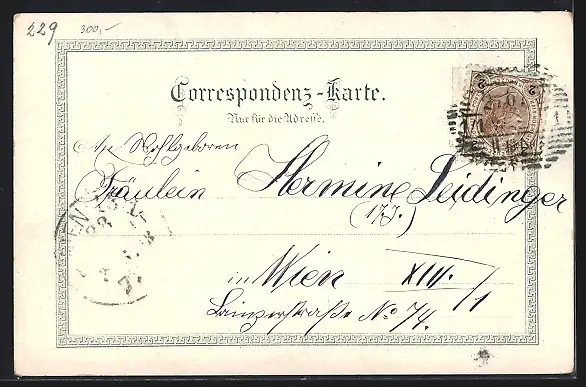 229 300,-
Correspondenz-Karte.
Nur für die Adresse.
An Wohlgeboren
Fräulein Hermine Leidinger
(177.)
in Wien XIII./1
Lainzerstraße No 74.